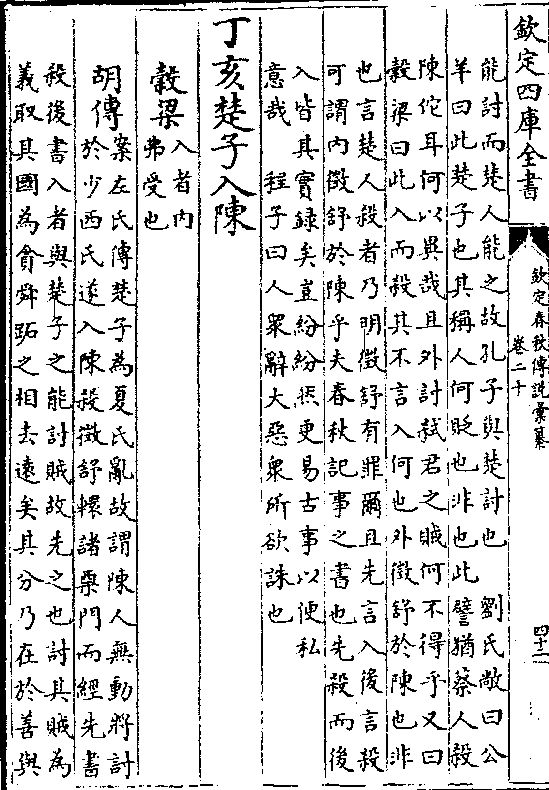 欽定四庫全書
欽定春秋傳說彙纂
卷二十
四十二
能討而楚人能之故孔子與楚討也 劉氏敞曰公
羊曰此楚子也其稱人何貶也非也此譬猶蔡人殺
陳佗耳何以異哉且外討弒君之賊何不得乎又曰
穀梁曰此入而殺其不言入何也外徵舒於陳也非
也言楚人殺者乃明徵舒有罪爾且先言入後言殺
可謂內徵舒於陳乎夫春秋記事之書也先殺而後
入皆其實錄矣豈紛紛然更易古事以便私
意哉 程子曰人眾辭大惡眾所欲誅也
丁亥楚子入陳
穀梁
入者內
弗受也
胡傳
案左氏傳楚子為夏氏亂故謂陳人無動將討
於少西氏遂入陳殺徵舒轘諸栗門而經先書
殺後書入者與楚子之能討賊故先之也討其賊為
義取其國為貪舜跖之相去遠矣其分乃在於善與